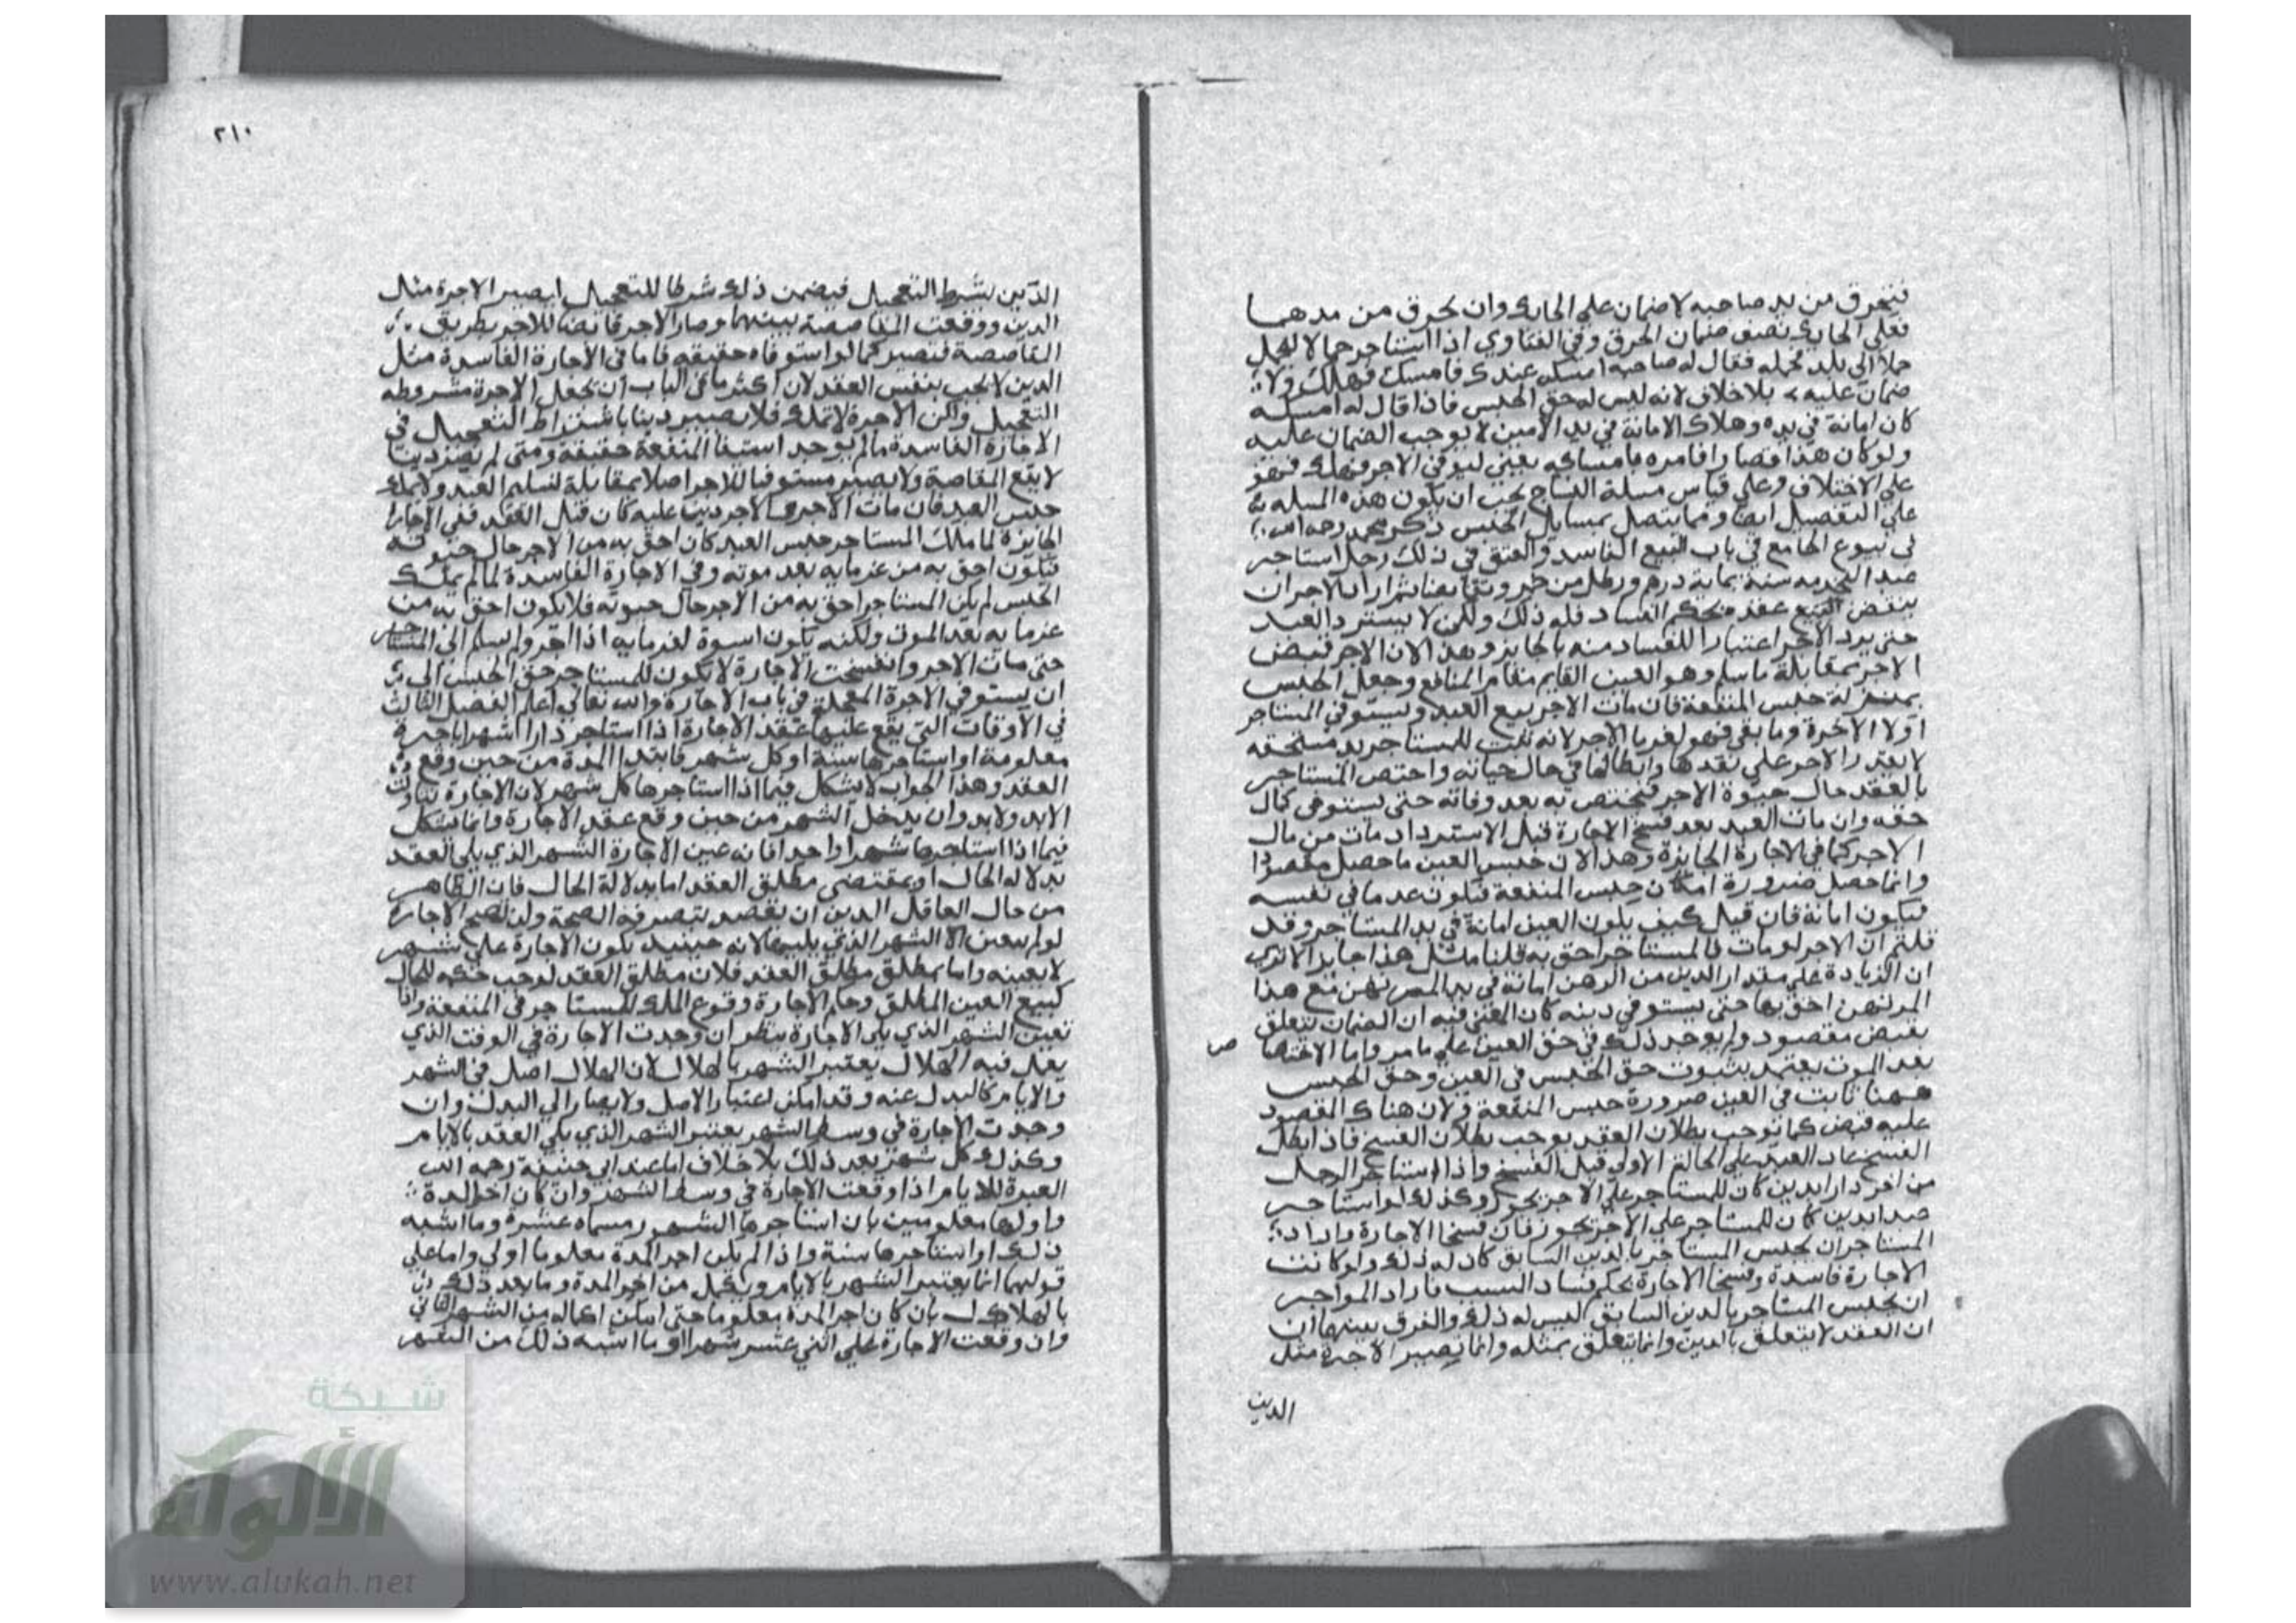 فتخرق من يد صاحبه لا ضمان على الحايك وان تخرق من مدهما
فعلى الحايك نصف ضمان الخرق وفي الفتاوي اذا استاجر حمالا ليحمل
حملا الى بلد فحمله فقال له صاحبه امسكه عندك فامسك فهلك ولا
ضمان عليه بلا خلاف لانه ليس له حق الحبس فاذا قال له امسكه
كان امانة في يده وهلاك الامانة في يد الامين لا يوجب الضمان عليه
ولو كان هذا قصارا فامره بامساكه يعني ليوفي الاجر فهلك فهو
على الاختلاف وعلى قياس مسلة النساج يجب ان يكون هذه المسله
على التفصيل ايضا ومما يتصل بمسايل الحبس ذكر محمد رحمه الله
في بيوع الجامع في باب البيع الفاسد والعتق في ذلك رجل استاجر
عبدا ليخدمه سنة بماية درهم ورطل من خمر وتقابضا ثم اراد الاجر ان
ينقض البيع عقد بحكم الفساد فله ذلك ولكن لا يسترد العبد
حتى يرد الاجر اعتبارا للفساد منه بالجايز وهذا لان الاجر قبض
الاجر بمقابلة ما سلم وهو العين القايم مقام المنافع وجعل الحبس
بمنزلة حبس المنفعة فان مات الاجر بيع العبد ويستوفي المستاجر
اولا الاجرة وما بقي فهو لغرما الاجر لانه تثبت للمستاجر يد مستحقه
لا يقدر الاجر على نقدها وابطالها في حال حياته واختص المستاجر
بالعقد حال حيوة الاجر فيختص به بعد وفاته حتى يستوفي كمال
حقه وان مات العبد بعد فسخ الاجارة قبل الاسترداد مات من مال
الاجر كما في الاجارة الجايزة وهذا لان حبس العين ما حصل مقصودا
وانما حصل ضرورة امكان حبس المنفعة فتكون عدما في نفسه
فيكون امانة فان قيل كيف يكون العين امانة في يد المستاجر وقد
قلتم ان الاجر لو مات فالمستاجر احق به قلنا مثل هذا جايز الا ترى
ان الزيادة على مقدار الدين من الرهن امانة في يد المرتهن مع هذا
المرتهن احق بها حتى يستوفي دينه كان المعنى فيه ان الضمان يتعلق
بقبض مقصود ولم يوجد ذلك في حق العين على ما مر واما الاختصا
ص
بعد الموت يعتمد بثبوت حق الحبس في العين وحق الحبس
ههنا ثابت في العين ضرورة حبس المنفعة ولان هناك المقصود
عليه قبض كما توجب بطلان العقد يوجب بطلان الفسخ فاذا بطل
الفسخ عاد العبد على الحالة الاولى قبل الفسخ واذا استاجر الرجل
من اخر دارا بدين كان للمستاجر على الاجر يجوز وكذلك لو استاجر
عبدا بدين كان للمستاجر على الاجر يجوز فان فسخا الاجارة واراد
المستاجر ان يحبس المستاجر بالدين السابق كان له ذلك ولو كانت
الاجارة فاسدة وفسخا الاجارة بحكم فساد السبب فاراد المواجر
ان يحبس المستاجر بالدين السابق ليس له ذلك والفرق بينهما ان
ان العقد لا يتعلق بالدين وانما يتعلق بمثله وانما تصير الاجرة مثل
الدين
٢١٠
الدين بشرط التعجيل فيضمن ذلك شرطا للتعجيل ليصير الاجرة مثل
الدين ووقعت المقاصصة بينهما وصار الاجر قابضا للاجر بطريق
المقاصصة فتصير كما لو استوفاه حقيقه فاما في الاجارة الفاسدة مثل
الدين لا يجب بنفس العقد لان اكثر ما في الباب ان تجعل الاجرة مشروطه
التعجيل ولكن الاجرة لا تملك فلا يصير دينا باشتراط التعجيل في
الاجارة الفاسدة ما لم يوجد استيفا المنفعة حقيقة ومتى لم يصر دينا
لا يقع المقاصة ولا يصير مستوفيا للاجر اصلا بمقابلة تسليم العبد ولا يملك
حبس العبد فان مات الاجر والاجر دين عليه كان قبل العقد ففي الاجارة
الجايزة لما ملك المستاجر حبس العبد كان احق به من الاجر حال حيوته
فيكون احق به من غرمايه بعد موته وفي الاجارة الفاسدة لما لم يملك
الحبس لم يكن المستاجر احق به من الاجر حال حيوته فلا يكون احق به من
غرمايه بعد الموت ولكنه يكون اسوة لغرمايه اذا اجر ولم يسلم الى المستاجر
حتى مات الاجر وانفسخت الاجارة لا يكون للمستاجر حق الحبس الى
ان يستوفي الاجرة المعجلة في باب الاجارة والله تعالى اعلم الفصل الثالث
في الاوقات التي يقع عليها عقد الاجارة اذا استاجر دارا شهرا باجرة
معلومة او استاجرها سنة او كل شهر فابتدا المدة من حين وقع
العقد وهذا الجواب لا يشكل فيما اذا استاجرها كل شهر لان الاجارة تناولت
الابد ولا بد وان يدخل الشهر من حين وقع عقد الاجارة وانما يشكل
فيما اذا استاجرها شهرا واحدا فانه عين الاجارة الشهر الذي يلي العقد
بدلالة الحال او بمقتضى مطلق العقد اما بدلالة الحال فان الظاهر
من حال العاقل الدين ان يقصد بتصرفه الصحة ولن تصح الاجارة
لو لم يعين الا الشهر الذي يليها لانه حينيد يكون الاجارة على شهر
لا بعينه واما بمطلق مطلق العقد فلان مطلق العقد يوجب حكمه للحال
كبيع العين المطلق وحكم الاجارة وقوع الملك للمستاجر في المنفعة واذا
تعين الشهر الذي يلي الاجارة ينظر ان وجدت الاجارة في الوقت الذي
يهل فيه الهلال يعتبر الشهر بالهلال لان الهلال اصل في الشهر
والايام كالبدل عنه وقد امكن اعتبار الاصل ولا يصار الى البدل وان
وجدت الاجارة في وسط الشهر يعتبر الشهر الذي يلي العقد بالايام
وكذلك كل شهر بعد ذلك بلا خلاف اما عند ابي حنيفة رحمه الله
العبرة للايام اذا وقعت الاجارة في وسط الشهر وان كان اخر المدة
واولها معلومين بان استاجرها الشهر مسماه عشرة وما اشبه
ذلك او استاجرها سنة واذا لم يكن اخر المدة معلوما اولى واما على
قولهما انما يعتبر الشهر بالايام ويكمل من اخر المدة وما بعد ذلك
بالهلال بان كان اخر المدة معلوما حتى امكن اكماله من الشهر الثاني
وان وقعت الاجارة على اثني عشر شهرا او ما اشبه ذلك من الشهر
شبكة
الألوكة
www.alukah.net